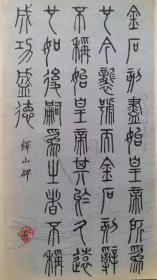 金石刻盡始皇帝所爲
也今襲號而金石刻辭
不稱始皇帝其於久遠
也如後嗣爲之者不稱
成功盛德
繹山碑